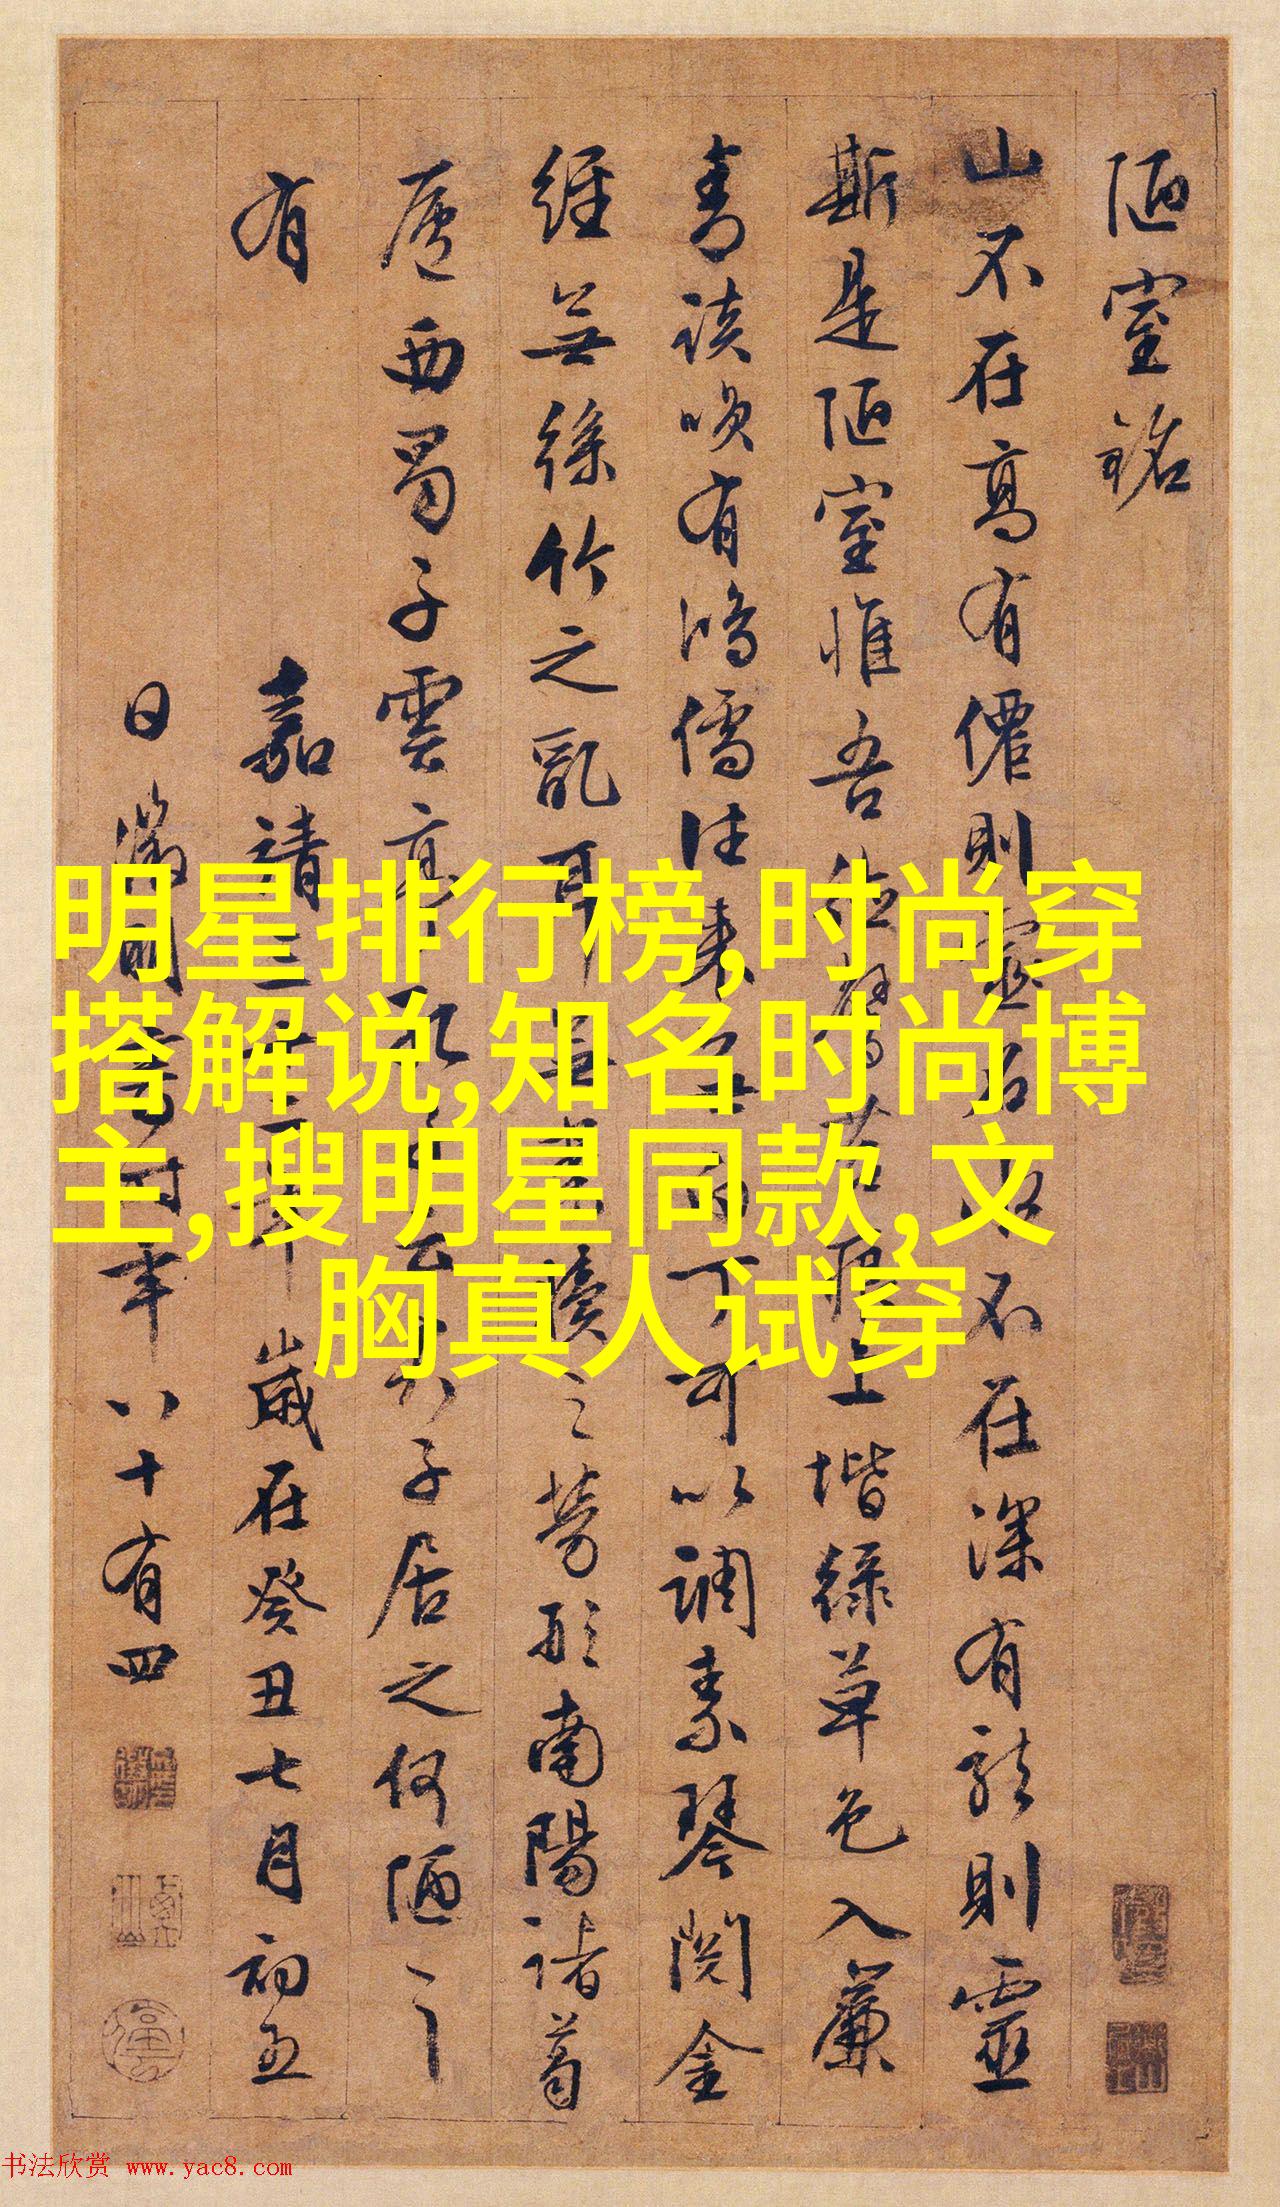 陋室銘
山不在高有僊則名水不在深有龍則靈
斯是陋室惟吾德馨苔痕上堦綠草色入簾
青談咲有鴻儒往來無白丁可以調素琴閱金
經無絲竹之亂耳無案牘之勞形南陽諸葛
廬西蜀子雲亭孔子云君子居之何陋之
有
嘉靖三十二年歲在癸丑七月初五
日徵明書時年八十有四
明星排行榜,时尚穿
搭解说,知名时尚博
主,搜明星同款,文
胸真人试穿
书法欣赏 www.yac8.com